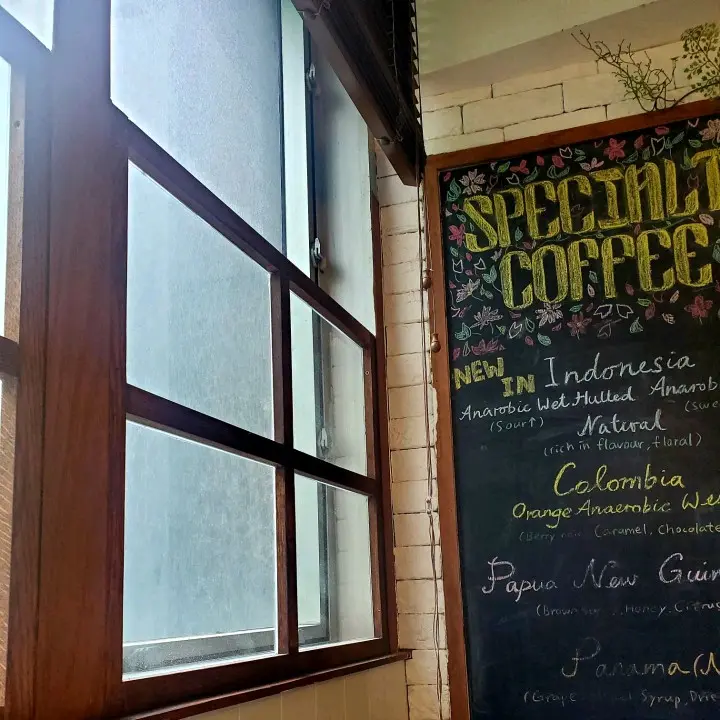 SPECIALT
COFFEE
NEW IN
Indonesia
Anarobic Wet.Hulled Anarob
(Sour↑) (swe
Natural
(rich in flavour, floral)
Colombia
Orange Anaerobic We
(Berry Caramel, Chocolate
Papua New Guin
(Brown Honey, Citrus
Panama (N
(Grape Syrup, Drie